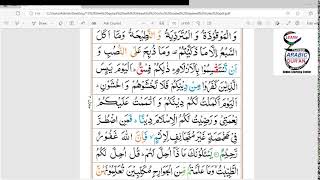 وَ الْمَوْقُوْذَةُ وَ الْمُتَرَدِّيَةُ وَ النَّطِيْحَةُ وَ مَاۤ اَكَلَ
السَّبُعُ اِلَّا مَا ذَكَّيْتُمْ وَ مَا ذُبِحَ عَلَى النُّصُبِ وَ
اَنْ تَسْتَقْسِمُوْا بِالْاَزْلَامِؕ ذٰلِكُمْ فِسْقٌؕ اَلْيَوْمَ يَىِٕسَ
الَّذِيْنَ كَفَرُوْا مِنْ دِيْنِكُمْ فَلَا تَخْشَوْهُمْ وَ اخْشَوْنِؕ
اَلْيَوْمَ اَكْمَلْتُ لَكُمْ دِيْنَكُمْ وَ اَتْمَمْتُ عَلَيْكُمْ
نِعْمَتِيْ وَ رَضِيْتُ لَكُمُ الْاِسْلَامَ دِيْنًاؕ فَمَنِ اضْطُرَّ
فِيْ مَخْمَصَةٍ غَيْرَ مُتَجَانِفٍ لِّاِثْمٍۙ فَاِنَّ اللّٰهَ غَفُوْرٌ
رَّحِيْمٌ يَسْـَٔلُوْنَكَ مَاذَاۤ اُحِلَّ لَهُمْؕ قُلْ اُحِلَّ لَكُمُ
الطَّيِّبٰتُۙ وَ مَا عَلَّمْتُمْ مِّنَ الْجَوَارِحِ مُكَلِّبِيْنَ
LEARN
ARABIC
QURAN